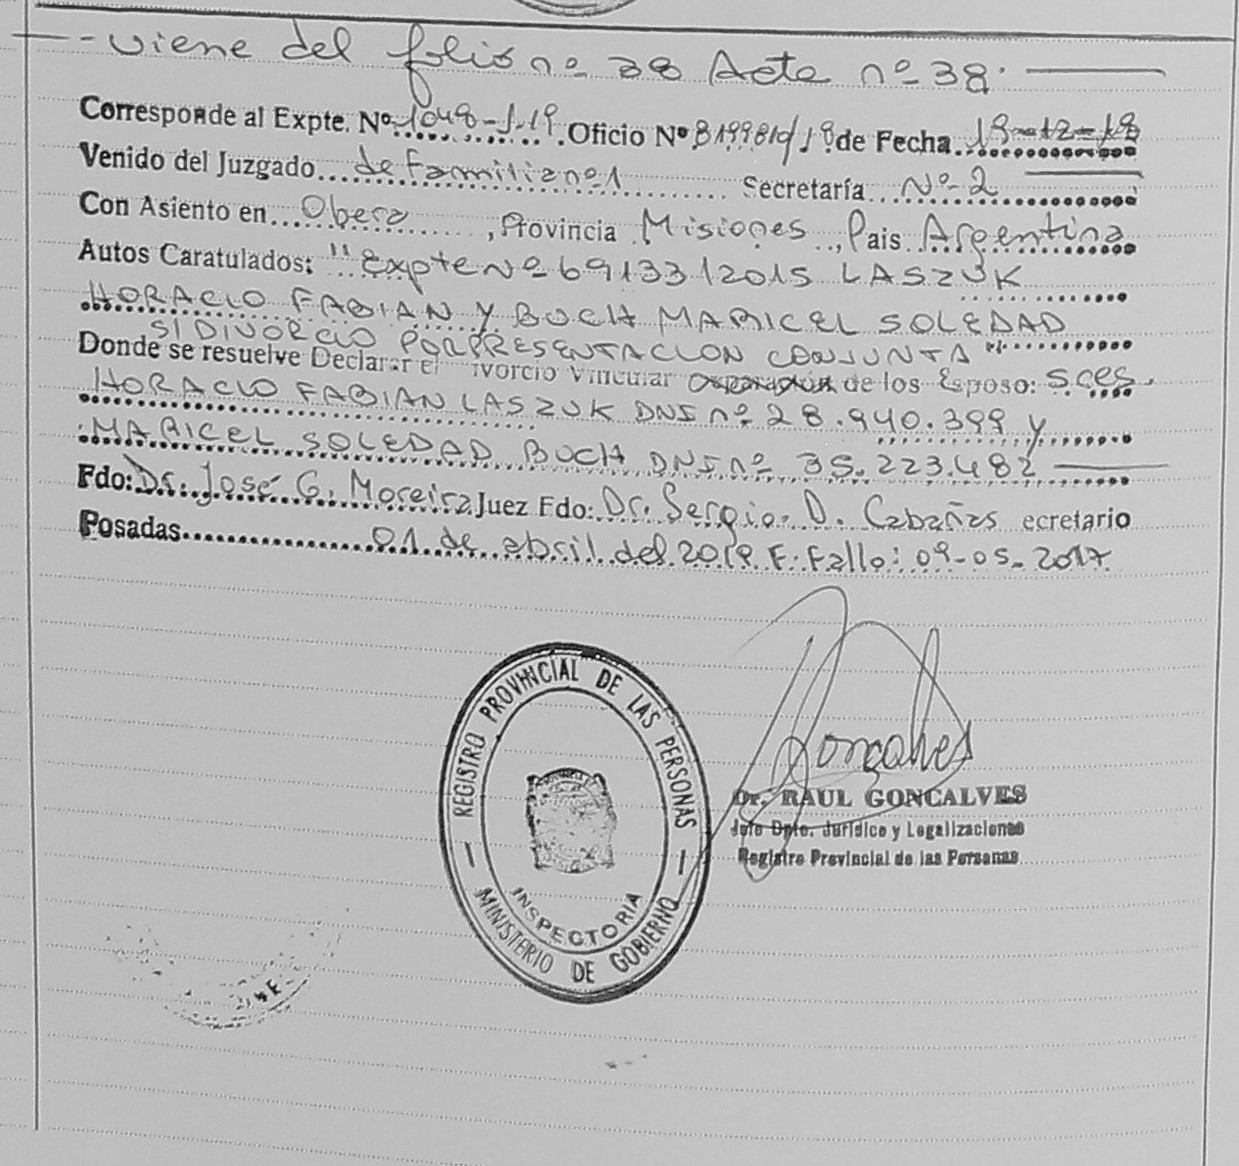 viene del folio nº 38 Acta nº 38.
Corresponde al Expte. Nº 1048-J-19 Oficio Nº 819981d/18 de Fecha 19-12-18
Venido del Juzgado de Familia nº 1 Secretaría Nº 2
Con Asiento en Obera, Provincia Misiones, Pais Argentina
Autos Caratulados: "Expte Nº 69133/2015 LASZUK
HORACIO FABIAN Y BUCH MARICEL SOLEDAD
S/DIVORCIO POR PRESENTACION CONJUNTA"
Donde se resuelve Declarar el ivorcio Vincular de los Esposo: Sres.
HORACIO FABIAN LASZUK DNI nº 28.940.399 y
MARICEL SOLEDAD BUCH DNI nº 35.223.482
Fdo: Dr. José G. Moreira Juez Fdo: Dr. Sergio D. Cabañas ecretario
Posadas 01 de abril del 2019 F. Fallo: 09-05-2017
REGISTRO PROVINCIAL DE LAS PERSONAS
INSPECTORIA
MINISTERIO DE GOBIERNO
Goncalves
Dr. RAUL GONCALVES
Jefe Dpto. Jurídico y Legalizaciones
Registro Provincial de las Personas